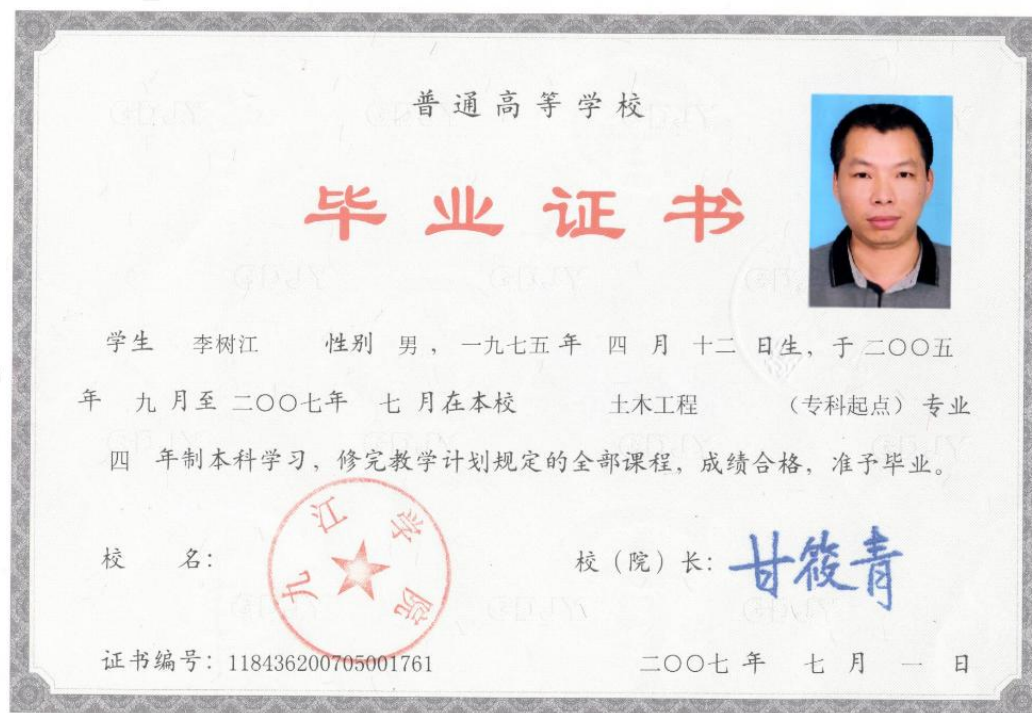 普通高等学校
毕业证书
学生 李树江 性别 男，一九七五年 四 月 十二 日生，于二〇〇五
年 九 月至 二〇〇七年 七 月在本校 土木工程 （专科起点）专业
四 年制本科学习，修完教学计划规定的全部课程，成绩合格，准予毕业。
九江学院
校 名： 校（院）长：甘筱青
证书编号：118436200705001761 二〇〇七 年 七 月 一 日